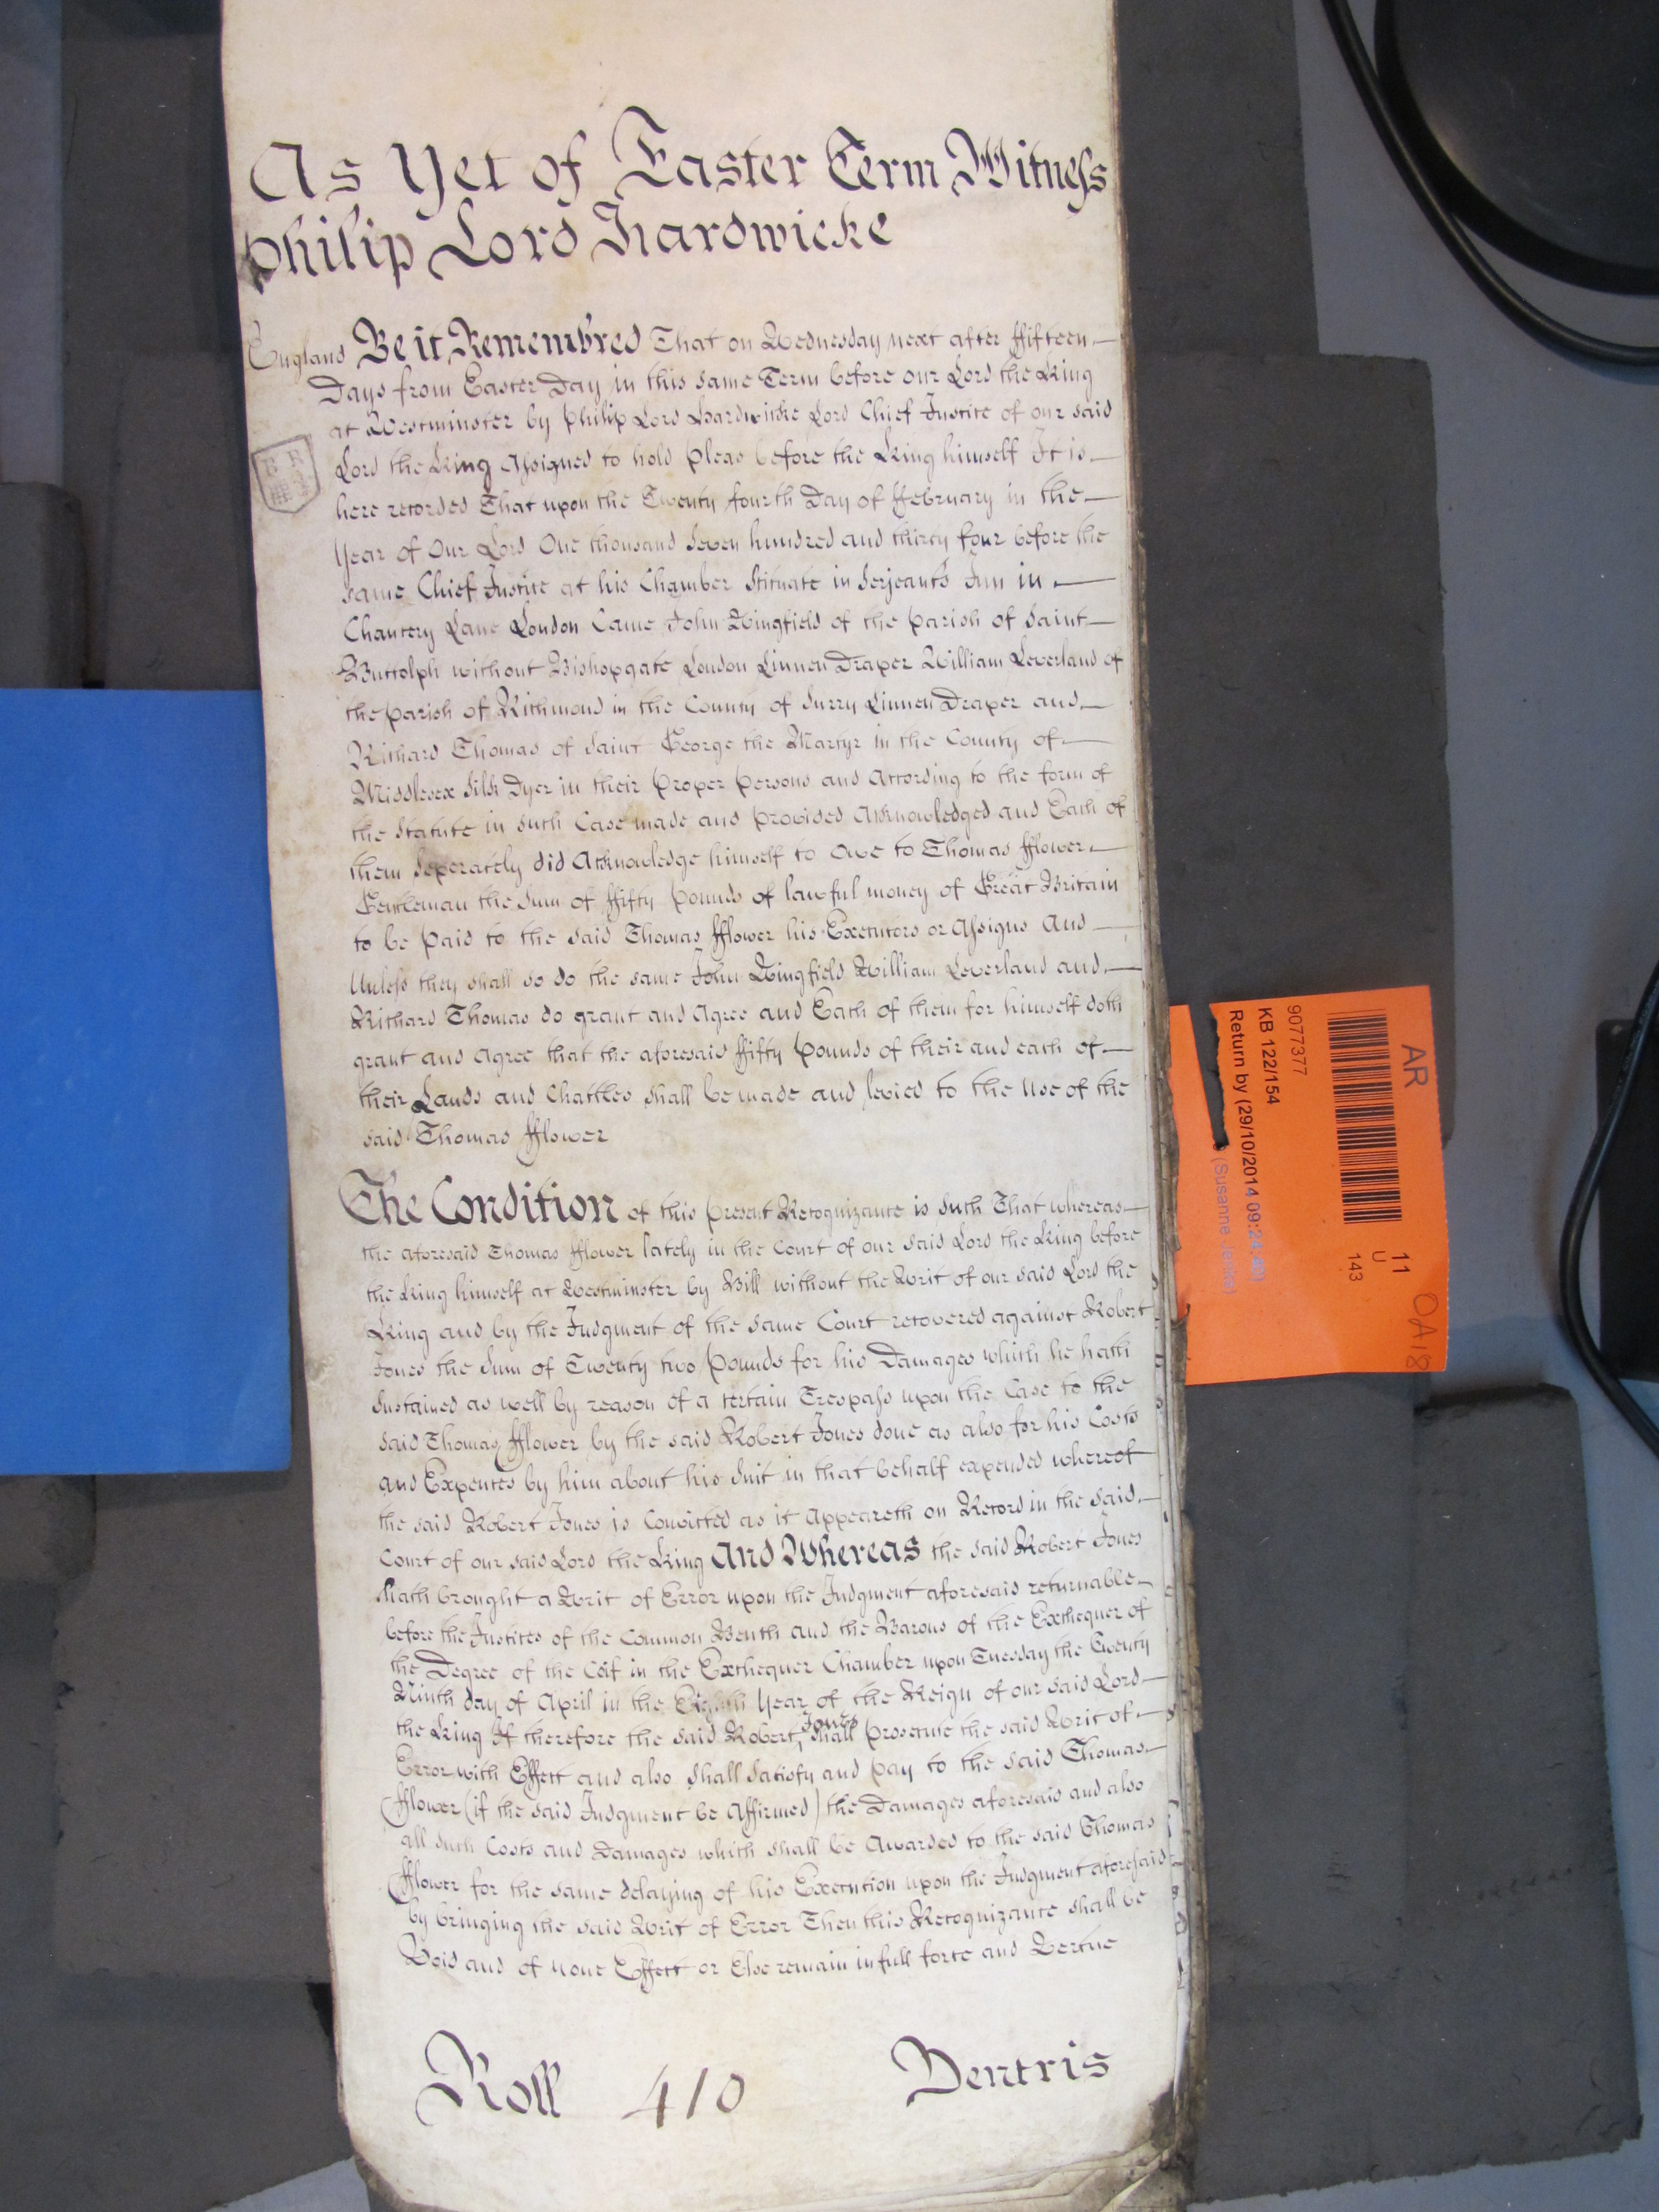 As Yet of Easter Term Witness
Philip Lord Hardwicke
England Be it Remembred That on Wednesday next after ffifteen
Days from Easter Day in this same Term before our Lord the King
at Westminster by Philip Lord Hardwicke Lord Chief Justice of our said
Lord the King Assigned to hold pleas before the King himself It is
here recorded That upon the Twenty fourth Day of ffebruary in the
Year of Our Lord One thousand Seven hundred and thirty four before the
same Chief Justice at his Chamber Stituate in Serjeants Inn in
Chancery Lane London Came John Wingfield of the parish of Saint
Buttolph without Bishopgate London Linnen Draper William Leverland of
the parish of Richmond in the County of Surry Linnen Draper and
Richard Thomas of Saint George the Martyr in the County of
Middlesex Silk Dyer in their proper persons and According to the form of
the Statute in such Case made and provided Acknowledged and Each of
them Seperately did Acknowledge himself to Owe to Thomas fflower
Gentleman the Sum of ffifty pounds of lawful money of Great Britain
to be paid to the said Thomas fflower his Executors or Assigns And
Unless they shall so do the same John Wingfield William Leverland and
Richard Thomas do grant and Agree and Each of them for himself doth
grant and Agree that the aforesaid ffifty pounds of their and each of
their Lands and Chattles shall be made and levied to the Use of the
said Thomas fflower
The Condition of this present Recognizance is Such That whereas
the aforesaid Thomas fflower lately in the Court of our said Lord the King before
the King himself at Westminster by Bill without the Writ of our said Lord the
King and by the Judgment of the same Court recovered against Robert
Jones the Sum of Twenty two pounds for his Damages which he hath
Sustained as well by reason of a certain Trespass upon the Case to the
said Thomas fflower by the said Robert Jones done as also for his Costs
and Expences by him about his Suit in that behalf expended whereof
the said Robert Jones is Convicted as it Appeareth on Record in the said
Court of our said Lord the King And Whereas the said Robert Jones
hath brought a Writ of Error upon the Judgment aforesaid returnable
before the Justices of the Common Bench and the Barons of the Exchequer of
the Degree of the Coif in the Exchequer Chamber upon Tuesday the Twenty
Ninth day of April in the Eighth Year of the Reign of our said Lord
the King If therefore the said Robert Jones shall prosecute the said Writ of
Error with Effect and also shall Satisfy and pay to the said Thomas
fflower (if the said Judgment be Affirmed) the Damages aforesaid and also
all such Costs and Damages which shall be Awarded to the said Thomas
fflower for the same delaying of his Execution upon the Judgment aforesaid
by bringing the said Writ of Error Then this Recognizance shall be
Void and of none Effect or Else remain in full force and Vertue
Roll 410 Ventris
AR
11
U
143
OA18
9077377
KB 122/154
Return by (29/10/2014 09:21:43)
(Susanne